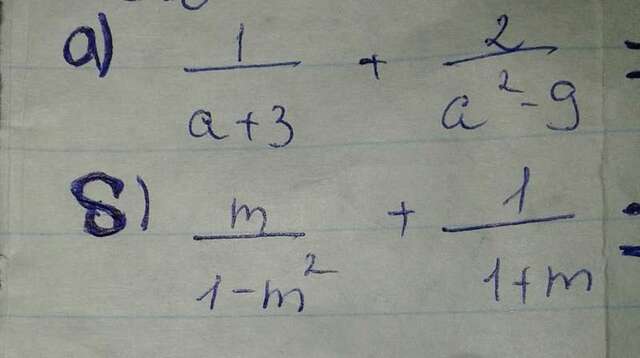 а) 1/(a+3) + 2/(a²-9) =
б) m/(1-m²) + 1/(1+m) =